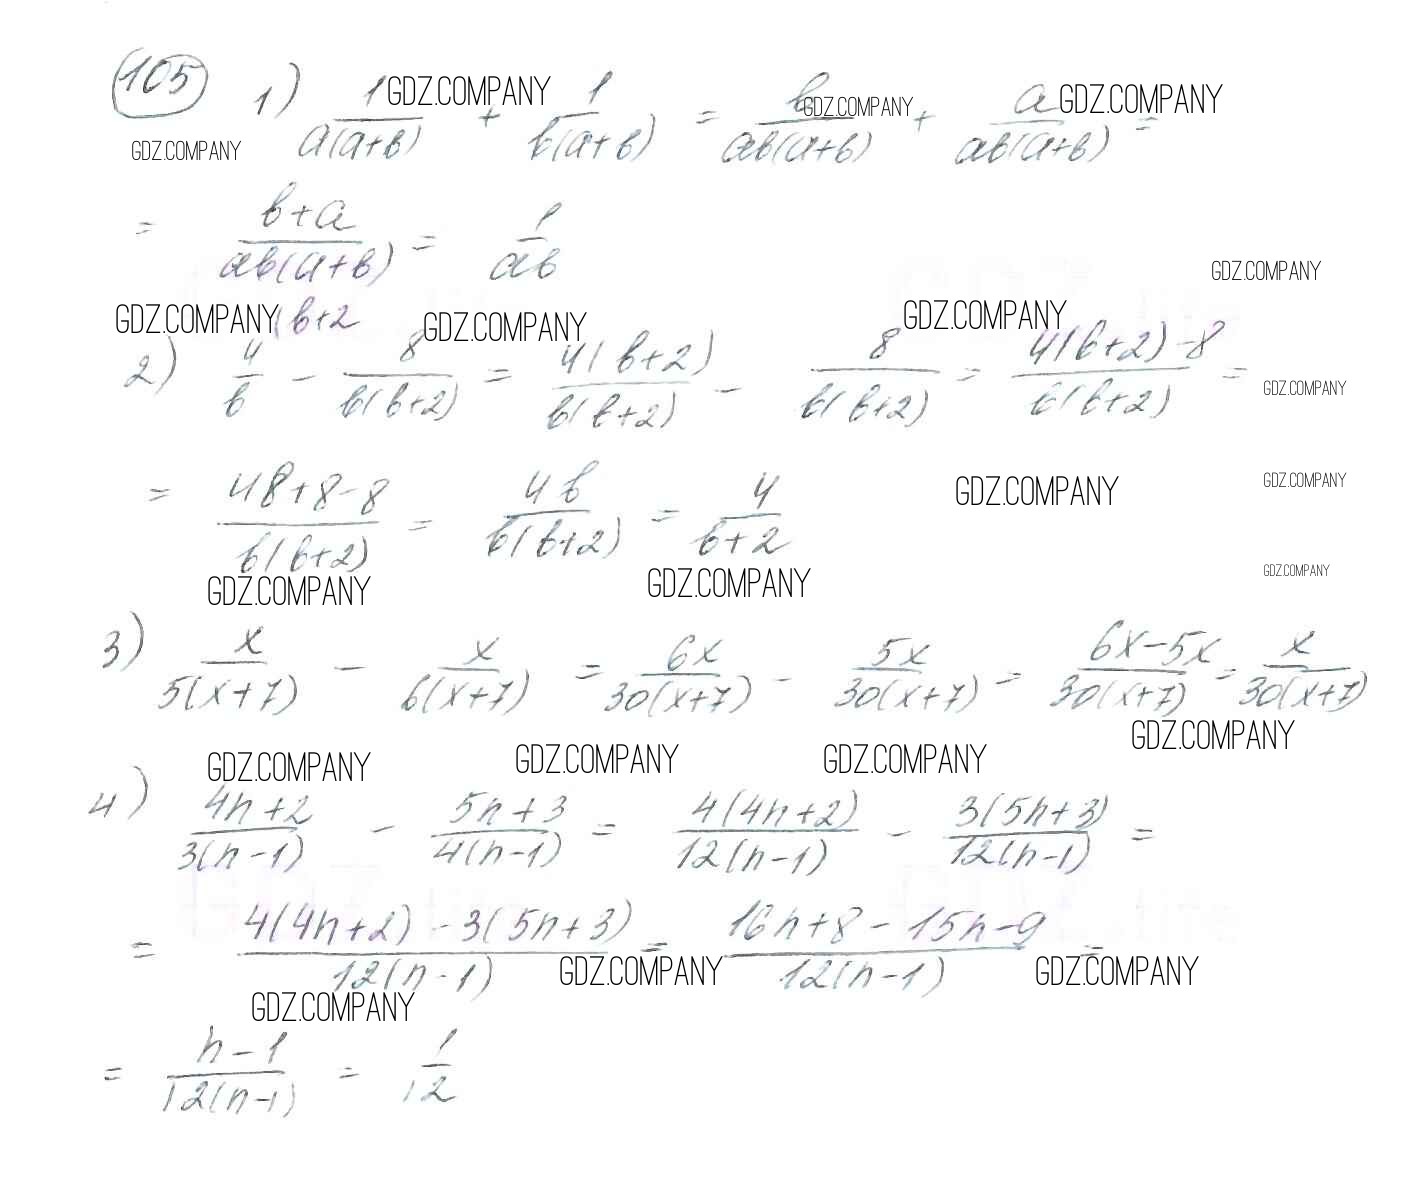 105 1) 1/(a(a+b)) + 1/(b(a+b)) = b/(ab(a+b)) + a/(ab(a+b)) =
GDZ.COMPANY GDZ.COMPANY GDZ.COMPANY GDZ.COMPANY
= (b+a)/(ab(a+b)) = 1/(ab)
GDZ.COMPANY
GDZ.COMPANY (b+2 GDZ.COMPANY GDZ.COMPANY
2) 4/b - 8/(b(b+2)) = 4(b+2)/(b(b+2)) - 8/(b(b+2)) = (4(b+2)-8)/(b(b+2)) =
GDZ.COMPANY
= (4b+8-8)/(b(b+2)) = 4b/(b(b+2)) = 4/(b+2)
GDZ.COMPANY GDZ.COMPANY
GDZ.COMPANY GDZ.COMPANY GDZ.COMPANY
3) x/(5(x+7)) - x/(6(x+7)) = 6x/(30(x+7)) - 5x/(30(x+7)) = (6x-5x)/(30(x+7)) = x/(30(x+7))
GDZ.COMPANY
GDZ.COMPANY GDZ.COMPANY GDZ.COMPANY
4) (4n+2)/(3(n-1)) - (5n+3)/(4(n-1)) = 4(4n+2)/(12(n-1)) - 3(5n+3)/(12(n-1)) =
= (4(4n+2)-3(5n+3))/(12(n-1)) = (16n+8-15n-9)/(12(n-1)) =
GDZ.COMPANY GDZ.COMPANY
GDZ.COMPANY
= (n-1)/(12(n-1)) = 1/12